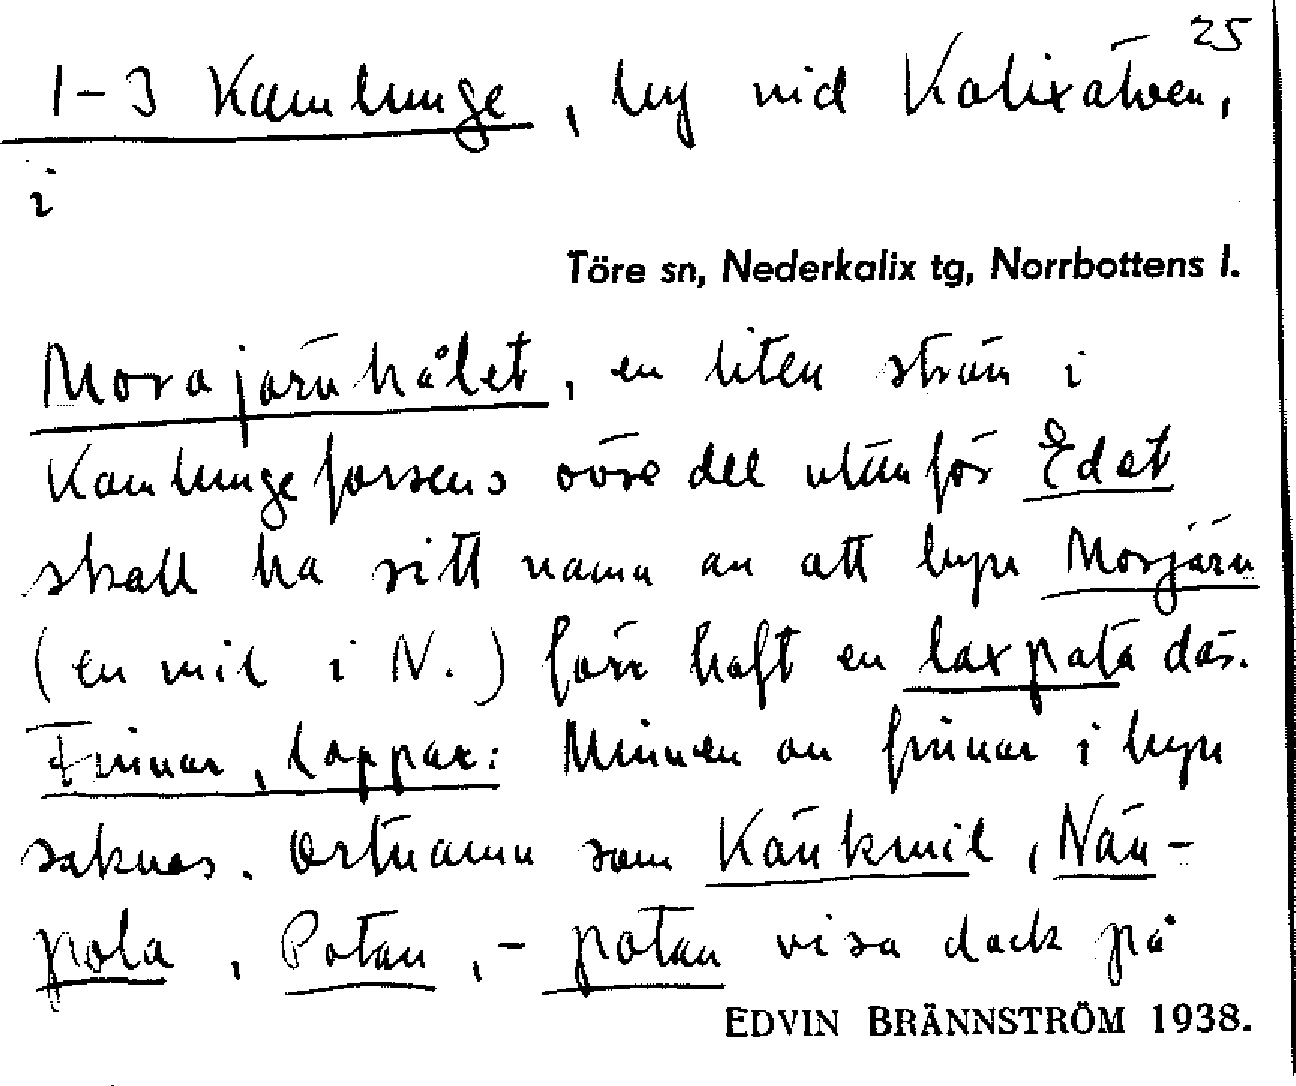 25
1-3 Kamlunge, by vid Kalixälven,
i
Töre sn, Nederkalix tg, Norrbottens l.
Morajärvhålet, en liten ström i
Kamlungeforsens övre del utanför Edet
skall ha sitt namn av att byn Morjärv
(en mil i N.) förr haft en laxpata där.
Finnar, lappar: Minnen om finnar i byn
saknas. Ortnamn som Känkmil, Nän-
pola, Patan, -patan visa dock på
EDVIN BRÄNNSTRÖM 1938.